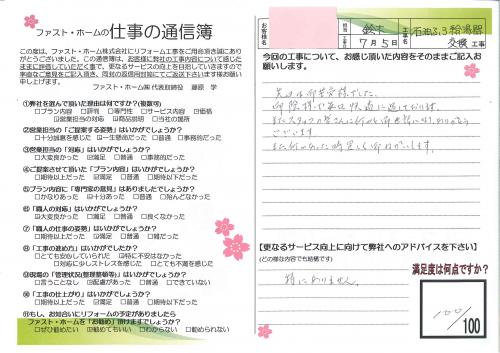 ファスト・ホームの仕事の通信簿
この度は、ファスト・ホーム株式会社にリフォーム工事をご用命頂き誠にあり
がとうございました。この通信簿は、お客様に弊社の工事内容について感じた
ままに評価していただく事で、更なるサービスの向上を目指していきますので
率直なご意見をご記入頂き、同封の返信用封筒にてご返送下さいます様お願い
申し上げます。
ファスト・ホーム㈱ 代表取締役　藤原　学
①弊社を選んで頂いた理由は何ですか？(複数可)
□プラン内容　□評判　□専門性　☑サービス内容　☑価格
☑営業担当の対応　□商品説明　□当社の場所
②営業担当の「ご提案する姿勢」はいかがでしょうか？
□十分誠意を感じた　☑一生懸命だった　□普通　□事務的だった
③営業担当の「対応」はいかがでしょうか？
□大変良かった　☑満足　□普通　□事務的だった
④ご提案させて頂いた「プラン内容」はいかがでしょうか？
□期待以上だった　☑満足　□普通　□期待以下だった
⑤プラン内容に「専門家の意見」はありましたでしょうか？
□かなりあった　☑十分あった　□普通　□殆んどなかった
⑥「職人の対応」はいかがでしょうか？
□大変良かった　☑満足　□普通　□良くなかった
⑦「職人の仕事の姿勢」はいかがでしょうか？
□期待以上だった　☑満足　□普通　□雑だった
⑧「工事の進め方」はいかがでしたか？
□とても安心していられた　☑特に不安はなかった
□対応に少しストレスを感じた　□とても不満を感じた
⑨現場の「管理状況(整理整頓等)」はいかがでしょうか？
□言うことなし　☑配慮があった　□普通　□できていない
⑩「工事の仕上がり」はいかがでしょうか？
□期待以上だった　☑満足　□普通　□期待以下だった
⑪もし、お知合いにリフォームの予定がありましたら
ファスト・ホームを「お勧め」頂けますでしょうか？
□ぜひ勧めたい　☑勧めてもいい　□わからない　□勧められない
お客様名
担当 鈴木
7月5日
工事名 石油ふろ給湯器
交換 工事
今回の工事について、お感じ頂いた内容をそのままご記入お
願いします。
先日はお世話様でした。
ございます
【更なるサービス向上に向けて弊社へのアドバイスを下さい】
(どの様な内容でも結構です)
特にありません。
満足度は何点ですか？
100
/100